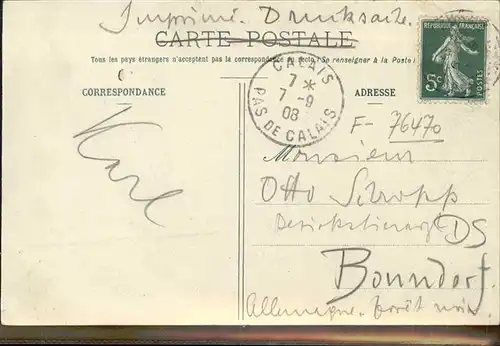 Imprimé. Drucksache.
CARTE POSTALE
Tous les pays étrangers n'acceptent pas la correspondance au recto (Se renseigner à la Poste)
RÉPUBLIQUE FRANÇAISE
5c
POSTES
CALAIS
7 *
7 -9
08
PAS DE CALAIS
CORRESPONDANCE
ADRESSE
F- 76470
Karl
Monsieur
Otto Schopp
Bezirkstierarzt
DS
Bonndorf.
Allemagne. forêt noire